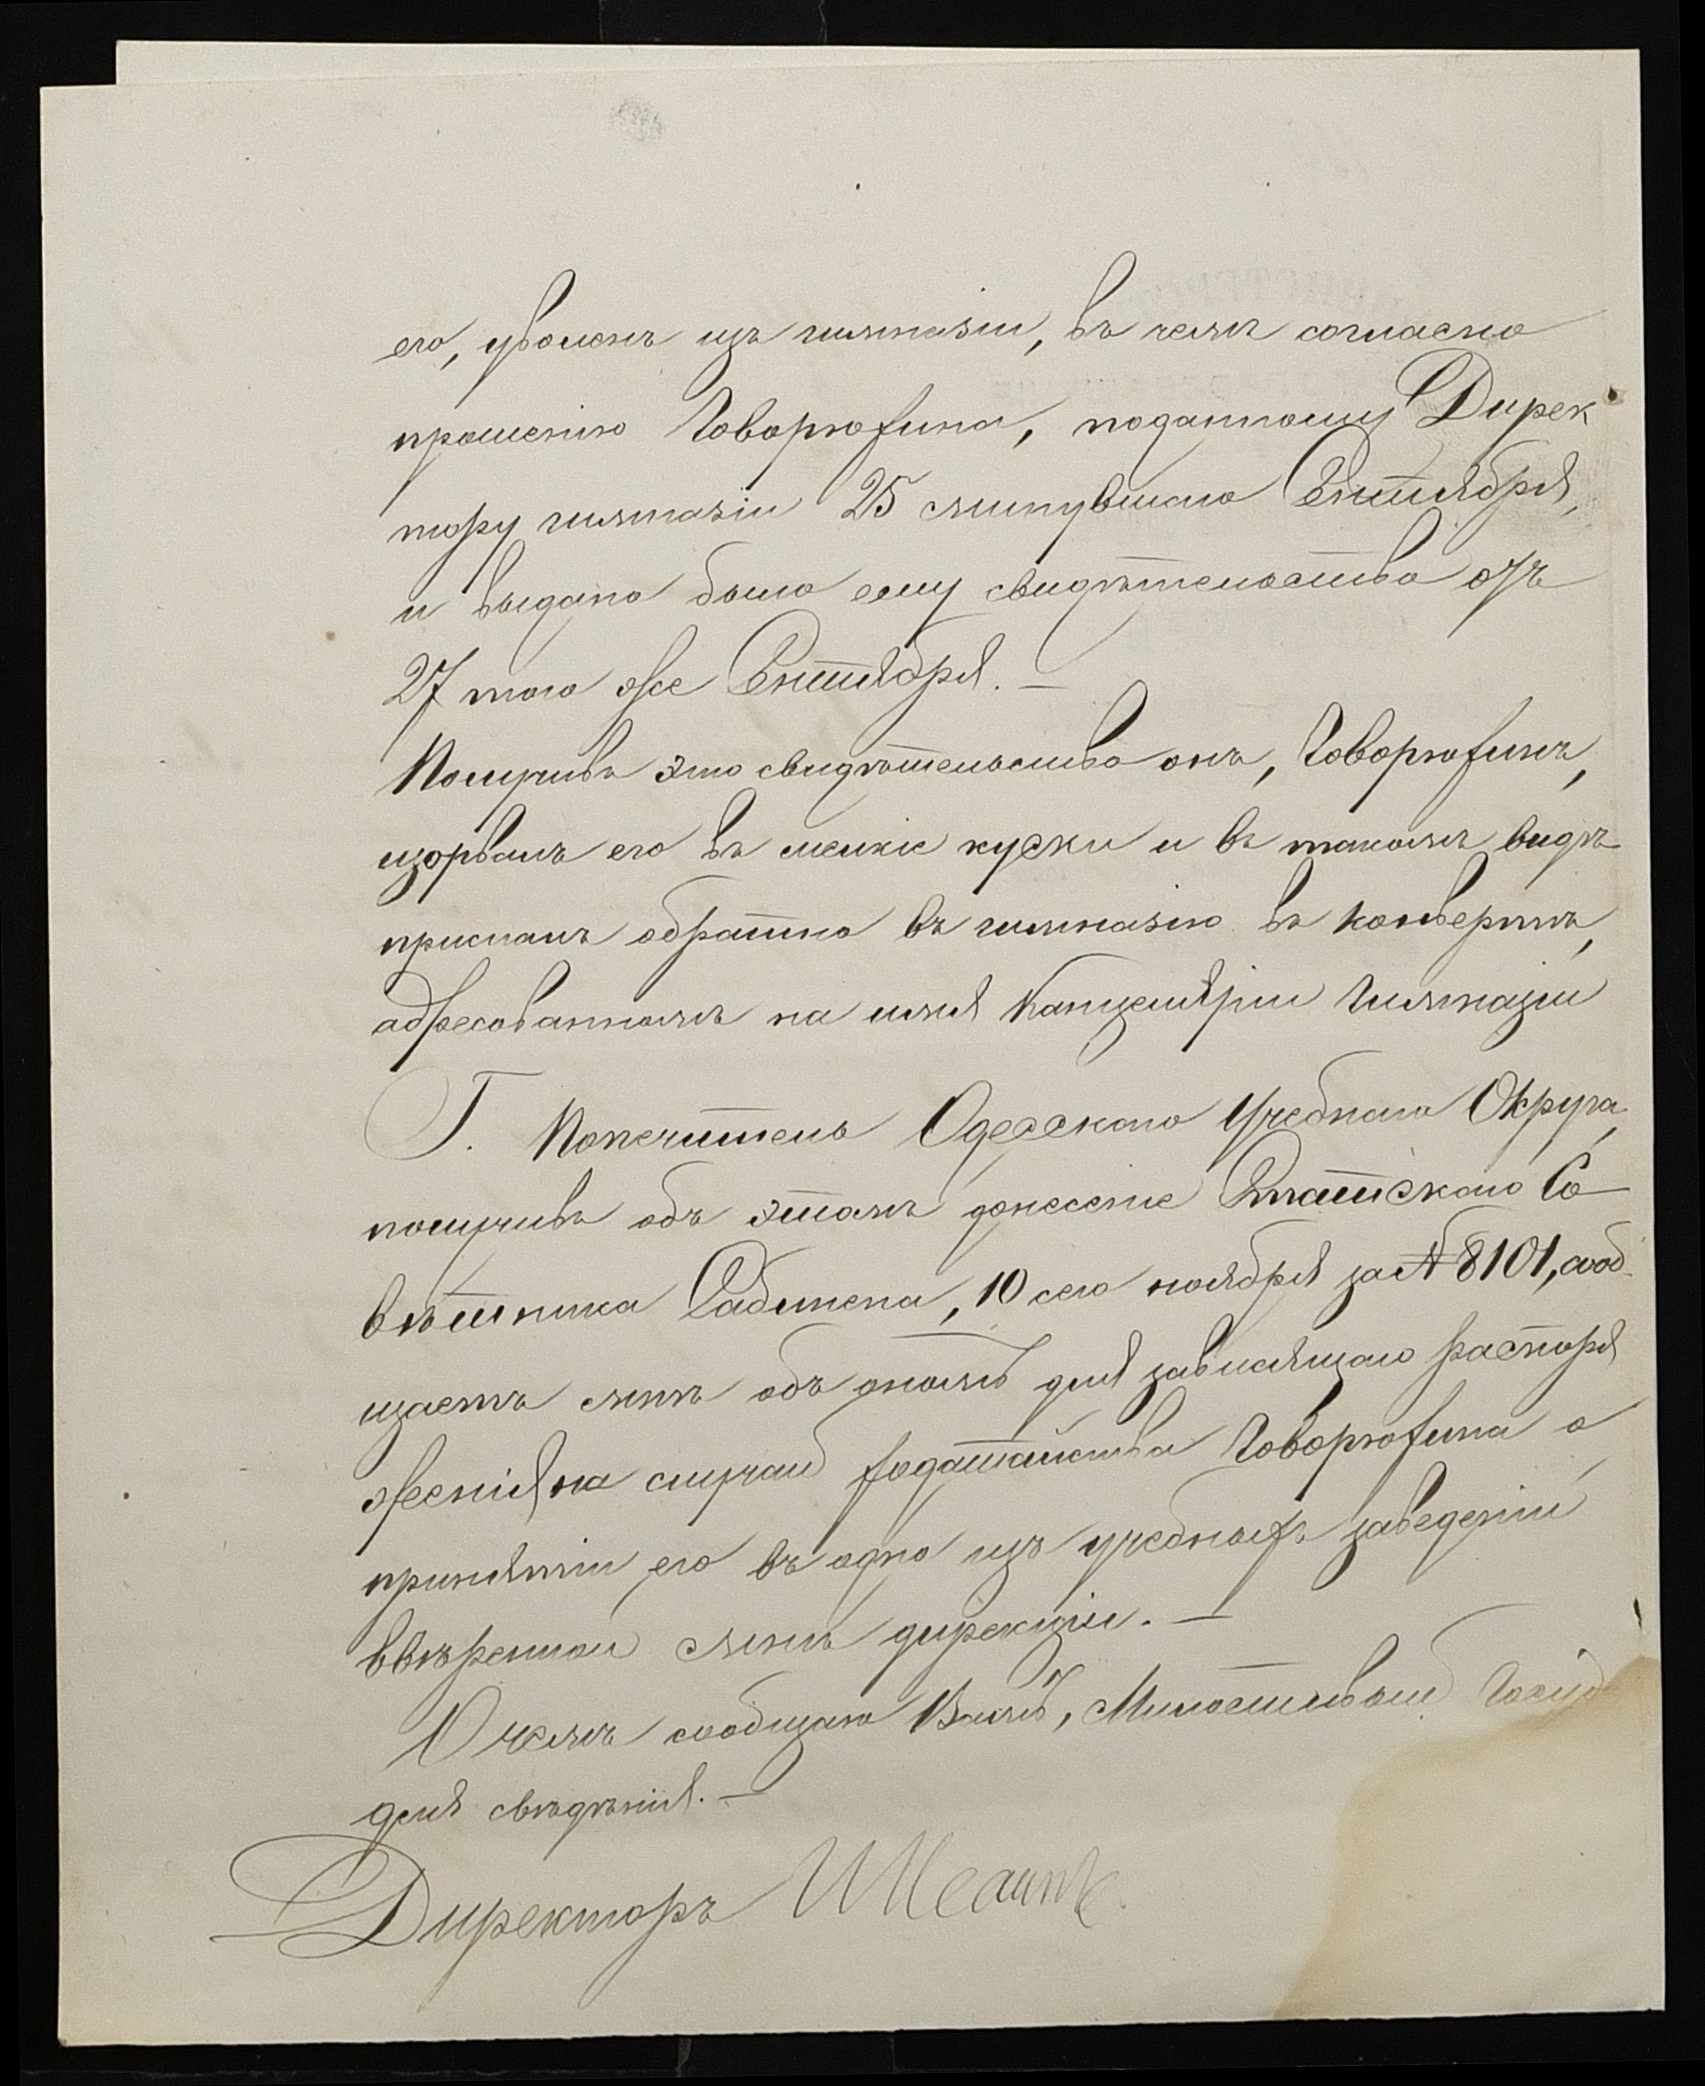 его, уволенъ изъ гимназіи, въ чемъ согласно
прошенію Говорюхина, поданному Дирек
тору гимназіи 25 минувшаго Сентября,
и выдано было ему свидѣтельство отъ
27 того же Сентября. —
Получивъ это свидѣтельство онъ, Говорюхинъ,
изорвалъ его въ мелкіе куски и въ такомъ видѣ
прислалъ обратно въ гимназію въ конвертѣ,
адресованномъ на имя Канцеляріи Гимназіи
Г. Попечитель Одесскаго Учебнаго Округа,
получивъ объ этомъ донесеніе Статскаго Со
вѣтника, 10 сего ноября за № 8101, сооб
щаетъ мнѣ объ ономъ для зависящаго распоря
женія на случай ходатайства Говорюхина о
принятіи его въ одно из учебныхъ заведеній
ввѣренной мнѣ дирекціи. —
О чемъ сообщаю Вамъ, Милостивый Госуд
для свѣдѣнія. —
Директоръ